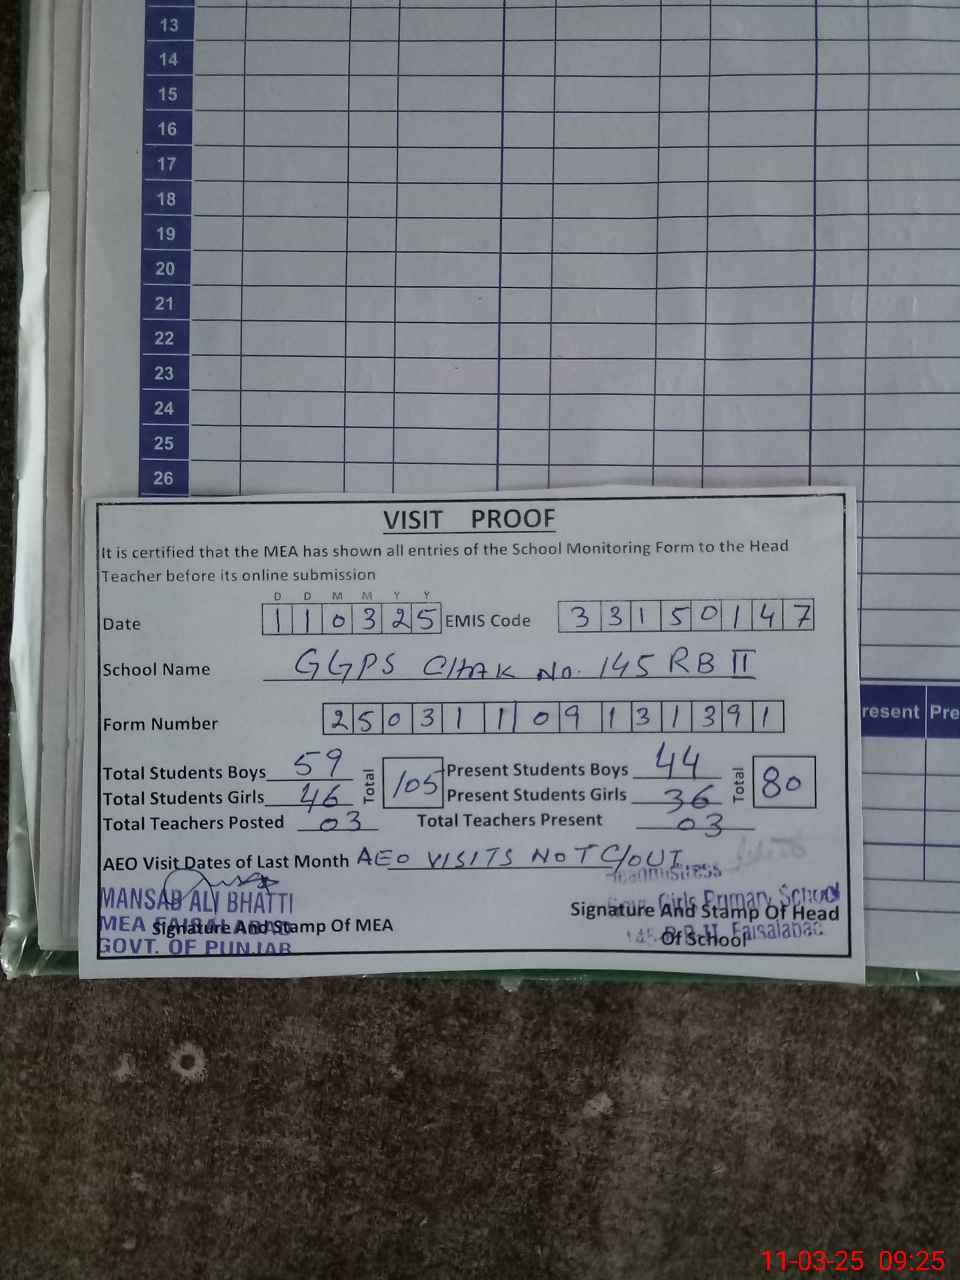 13
14
15
16
17
18
19
20
21
22
23
24
25
26
resent Pre
VISIT PROOF
It is certified that the MEA has shown all entries of the School Monitoring Form to the Head
Teacher before its online submission
D D M M Y Y
Date 110325 EMIS Code 33150147
School Name GGPS CHAK No. 145 RB II
Form Number 250311109131391
Total Students Boys 59 Total 105 Present Students Boys 44 Total 80
Total Students Girls 46 Present Students Girls 36
Total Teachers Posted 03 Total Teachers Present 03
AEO Visit Dates of Last Month AEO VISITS NOT C/OUT
Headmistress
MANSAB ALI BHATTI
Girls Primary School
MEA FAISALABAD
Signature And Stamp Of MEA
Signature And Stamp Of Head
GOVT. OF PUNJAB
Of School
145 R.B II, Faisalabad
11-03-25 09:25